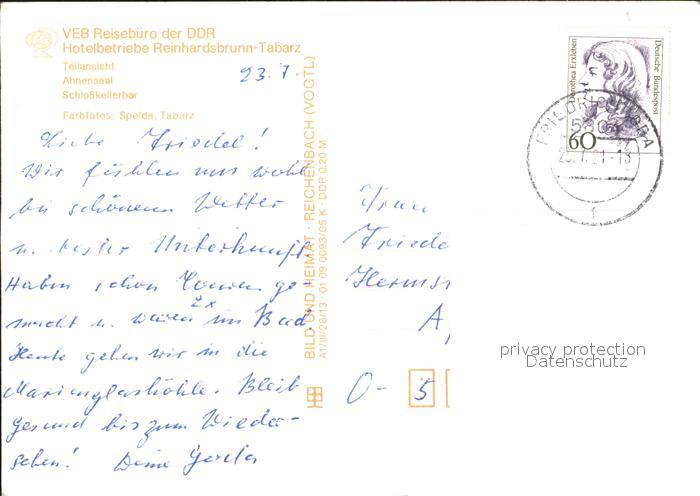 VEB Reisebüro der DDR
Hotelbetriebe Reinhardsbrunn-Tabarz
Teilansicht
Ahnensaal
Schloßkellerbar
Farbfotos: Spelda, Tabarz
23.7.
Liebe Friedel!
Wir fühlen uns wohl
bei schönem Wetter
u. bester Unterkunft.
Haben schon Touren ge-
macht u. waren 2x im Bad
Heute gehen wir in die
Marienglashöhle. Bleib
gesund bis zum Wieder-
sehen! Deine Gerda
BILD UND HEIMAT · REICHENBACH (VOGTL)
A1/III/26/13 · 01 09 0093/05 K · DDR 0,20 M
Frau
Friede
Herms
A
O- 5
Dorothea Erxleben
Deutsche Bundespost
60
FRIEDRICHRODA
privacy protection
Datenschutz